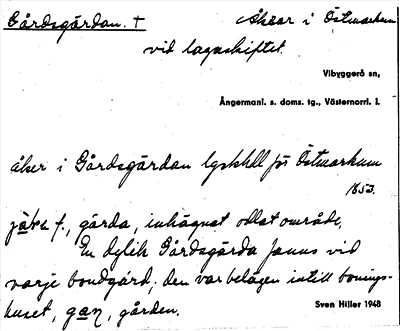 Gårdsgärdan. †
Åker i Östmarkum
vid lagaskiftet.
Vibyggerå sn,
Ångermanl. s. doms. tg., Västernorrl. l.
åker i Gårdsgärdan LgskHll för Östmarkum
1853.
f., gärda, inhägnat odlat område,
En dylik Gårdsgärda fanns vid
varje bondgård; den var belägen intill bonings-
huset, gan, gården.
Sven Hiller 1948